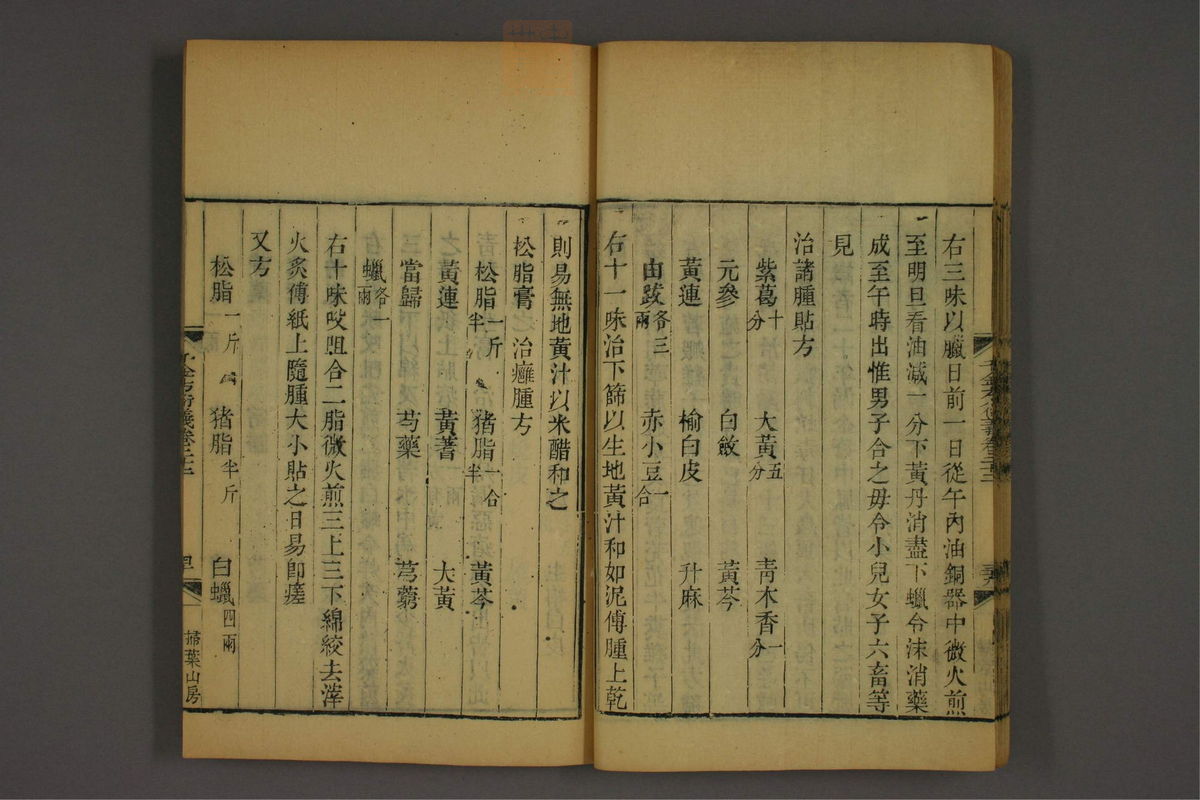 右三味以臘日前一日從午內油銅器中微火煎
至明旦看油減一分下黃丹消盡下蠟令沫消藥
成至午時出惟男子合之毋令小兒女子六畜等
見
治諸腫貼方
紫葛十分 大黃五分 青木香一分
元參 白蘞 黃芩
黃連 榆白皮 升麻
由跋各三兩 赤小豆一合
右十一味治下篩以生地黃汁和如泥傅腫上乾
則易無地黃汁以米醋和之
松脂膏 治癰腫方
松脂一斤半 猪脂一合半 黃芩
黃連 黃蓍 大黃
當歸 芍藥 芎藭
蠟各一兩
右十味㕮咀合二脂微火煎三上三下綿絞去滓
火炙傅紙上隨腫大小貼之日易卽瘥
又方
松脂一斤 猪脂半斤 白蠟四兩
千金方衍義卷二十二
掃葉山房